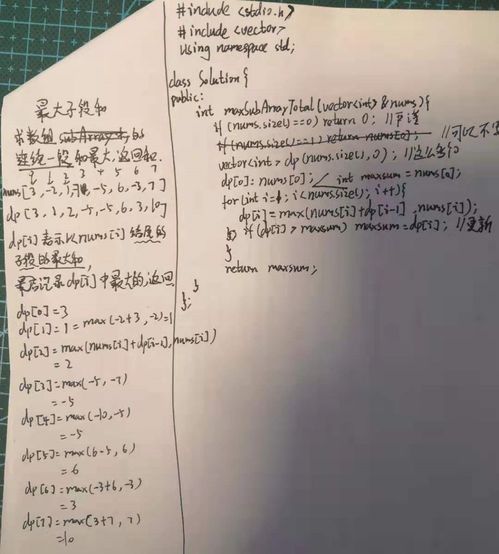 最大子段和
求数组的
连续一段和最大,返回和.
0 1 2 3 4 5 6 7
nums[3, -2, 1, -7, -5, 6, -3, 7]
dp[3, 1, 2, -5, -5, 6, 3, 10]
dp[i]表示以nums[i]结尾的
子段的最大和,
最后记录dp[i]中最大的,返回
dp[0]=3
dp[1]=1=max(-2+3, -2)=1
dp[2]=max(nums[i]+dp[i-1], nums[i])
=2
dp[3]=max(-5, -7)
=-5
dp[4]=max(-10, -5)
=-5
dp[5]=max(6-5, 6)
=6
dp[6]=max(-3+6, -3)
=3
dp[7]=max(3+7, 7)
=10
#include <stdio.h>
#include <vector>
using namespace std;
class Solution {
public:
int maxSubArrayTotal(vector<int> &nums){
if (nums.size()==0) return 0; //
if (nums.size()==1) return nums[0]; //可以不写
vector<int> dp(nums.size(), 0); //
dp[0]=nums[0]; int maxsum=nums[0];
for(int i=1; i<nums.size(); i++){
dp[i]=max(nums[i]+dp[i-1], nums[i]);
if(dp[i]>maxsum) maxsum=dp[i]; //更新
}
return maxsum;
}
};